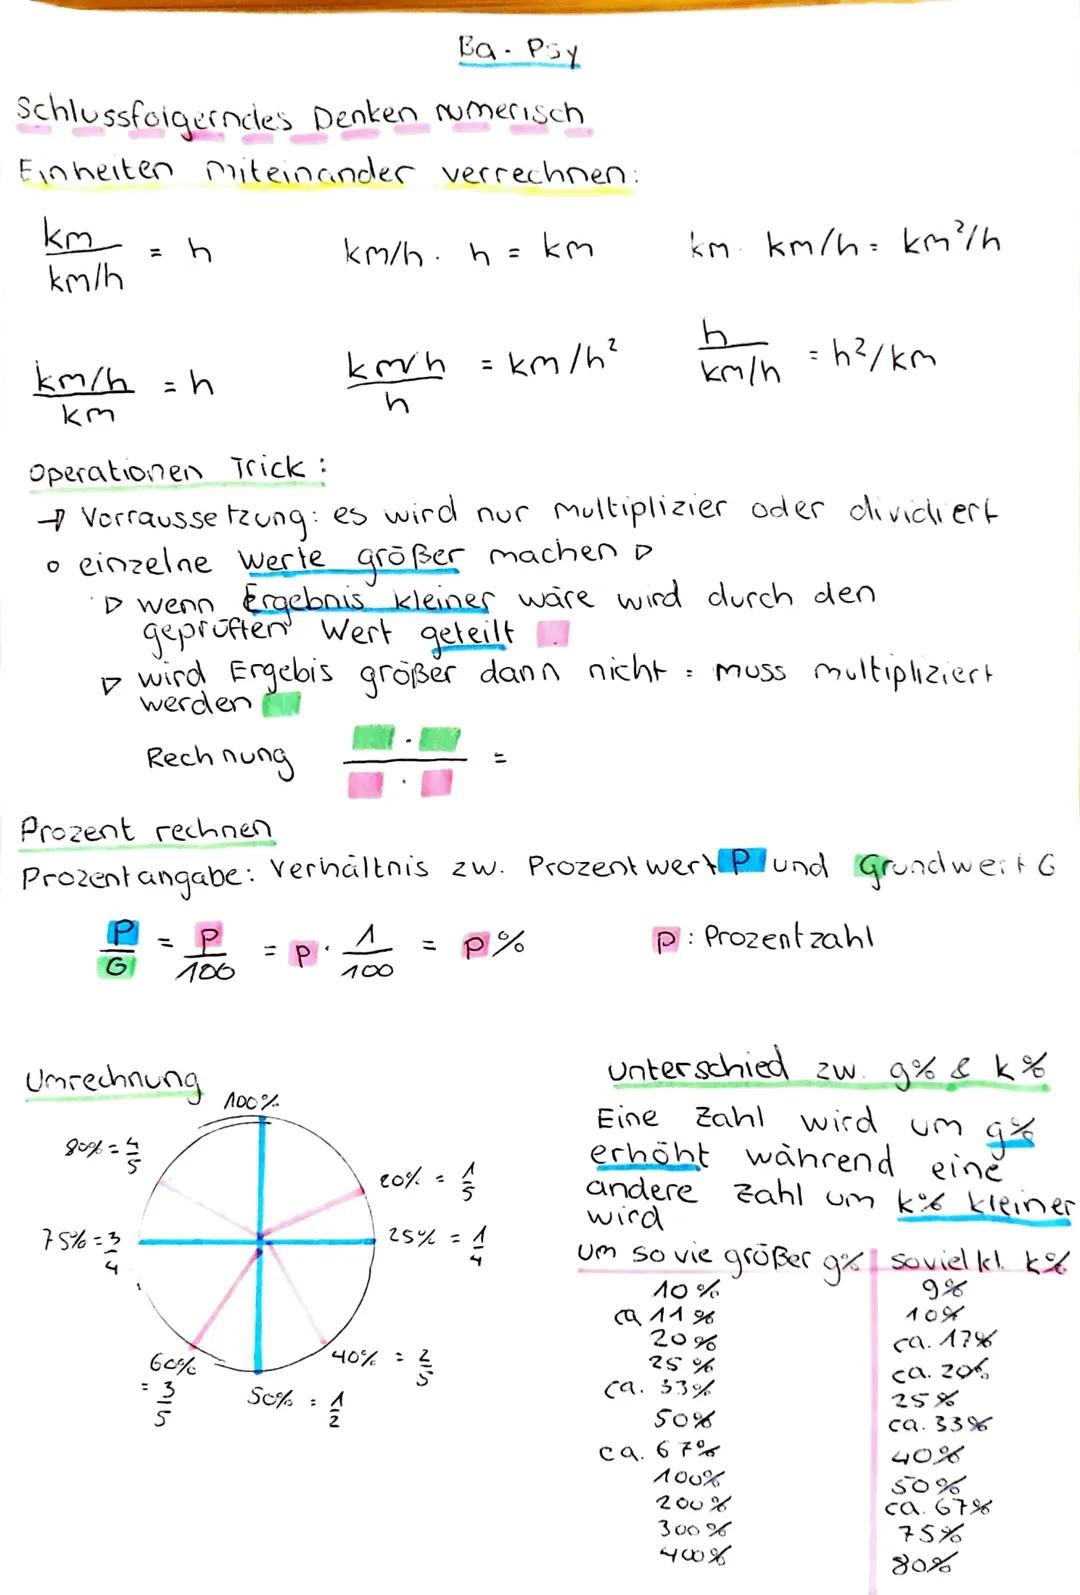 Ba. Psy
Schlussfolgerndes Denken numerisch
Einheiten miteinander verrechnen:
km/km/h = h    km/h · h = km    km · km/h = km²/h
km/h/km = h    km/h/h = km/h²    h/km/h = h²/km
Operationen Trick:
→ Vorraussetzung: es wird nur multiplizier oder dividiert
o einzelne Werte größer machen ▷
▷ wenn Ergebnis kleiner wäre wird durch den
geprüften Wert geteilt
▷ wird Ergebis größer dann nicht : muss multipliziert
werden
Rechnung · / · =
Prozent rechnen
Prozentangabe: Verhältnis zw. Prozentwert P und Grundwert G
P/G = p/100 = p · 1/100 = p%    p: Prozentzahl
Umrechnung
100%
80% = 4/5
20% = 1/5
75% = 3/4
25% = 1/4
60% = 3/5
40% = 2/5
50% = 1/2
Unterschied zw. g% & k%
Eine Zahl wird um g%
erhöht während eine
andere Zahl um k% kleiner
wird
um so vie größer g% | soviel kl. k%
10% 9%
ca 11% 10%
20% ca. 17%
25% ca. 20%
ca. 33% 25%
50% ca. 33%
ca. 67% 40%
100% 50%
200% ca. 67%
300% 75%
400% 80%